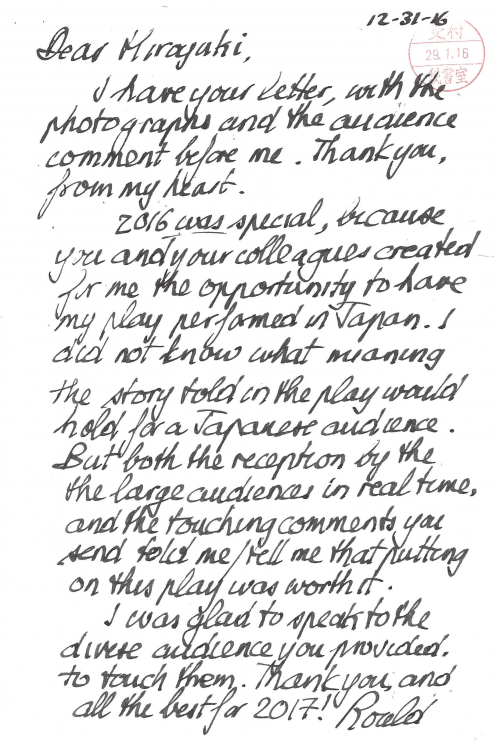 12-31-16
交付
29.1.16
秘書室
Dear Hirayuki,
I have your letter, with the
photographs and the audience
comment before me. Thank you,
from my heart.
2016 was special, because
you and your colleagues created
for me the opportunity to have
my play performed in Japan. I
did not know what meaning
the story told in the play would
hold for a Japanese audience.
But both the reception by the
the large audiences in real time,
and the touching comments you
send told me/tell me that putting
on this play was worth it.
I was glad to speak to the
diverse audience you provided,
to touch them. Thank you, and
all the best for 2017! Roald